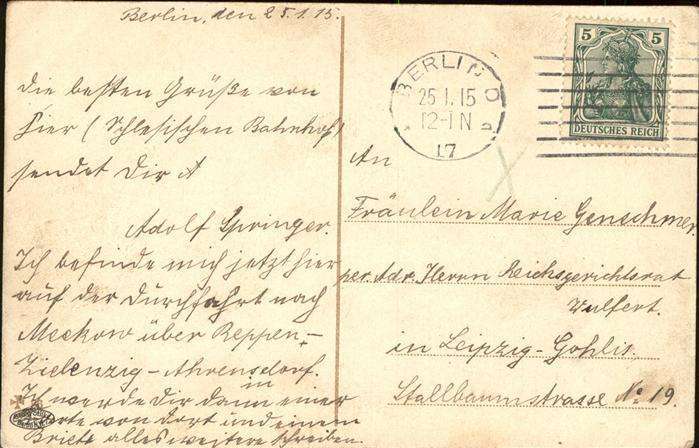 Berlin, den 25.1.15.
Die besten Grüße von
hier (Schlesischen Bahnhof)
sendet Dir A
Adolf Springer.
Ich befinde mich jetzt hier
auf der Durchfahrt nach
Meekow über Reppen,-
Zielenzig-Ahrensdorf.
Ich werde Dir dann in einer
Karte von dort und einem
Briefe alles weitere schreiben.
BERLIN O
25.1.15
12-1N
17
5 5
DEUTSCHES REICH
An
Fräulein Marie Genschmer.
per. Adr. Herrn Reichsgerichtsrat
Wulfert.
in Leipzig-Gohlis.
Stallbaumstrasse No 19.